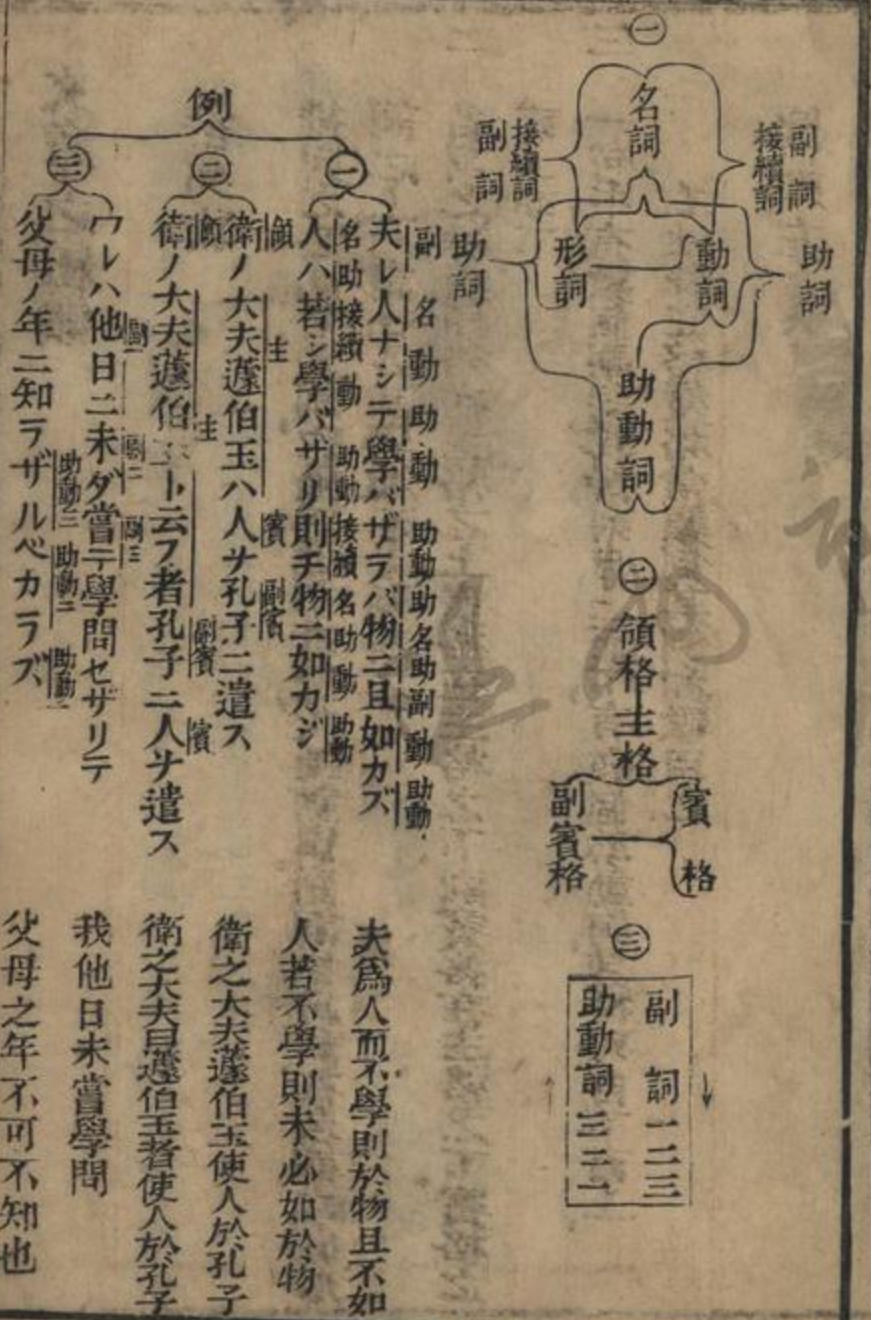 ㊀
副詞
接續詞
名詞
接續詞
副詞
助詞
動詞
形詞
助詞
助動詞
㊁
領格
主格
賓格
副賓格
㊂
副詞一二三
助動詞三二一
例
㊀
副 名 動 助 動 助動 助 名 助 副 動 助動
夫レ人ナシテ學バザラバ物ニ且如カズ
名 助 接續 動 助動 接續 名 助 動 助動
人ハ若シ學バザリ則チ物ニ如カジ
㊁
領 主 賓 副賓
衛ノ大夫蘧伯玉ハ人ヲ孔子ニ遣ス
領 主 副賓 賓
衛ノ大夫蘧伯玉ト云フ者孔子ニ人ヲ遣ス
㊂
副一 副二 副三
ワレハ他日ニ未ダ嘗テ學問セザリテ
助動三 助動二 助動一
父母ノ年ニ知ラザルベカラズ
夫爲人而不學則於物且不如
人若不學則未必如於物
衛之大夫蘧伯玉使人於孔子
衛之大夫曰蘧伯玉者使人於孔子
我他日未嘗學問
父母之年不可不知也